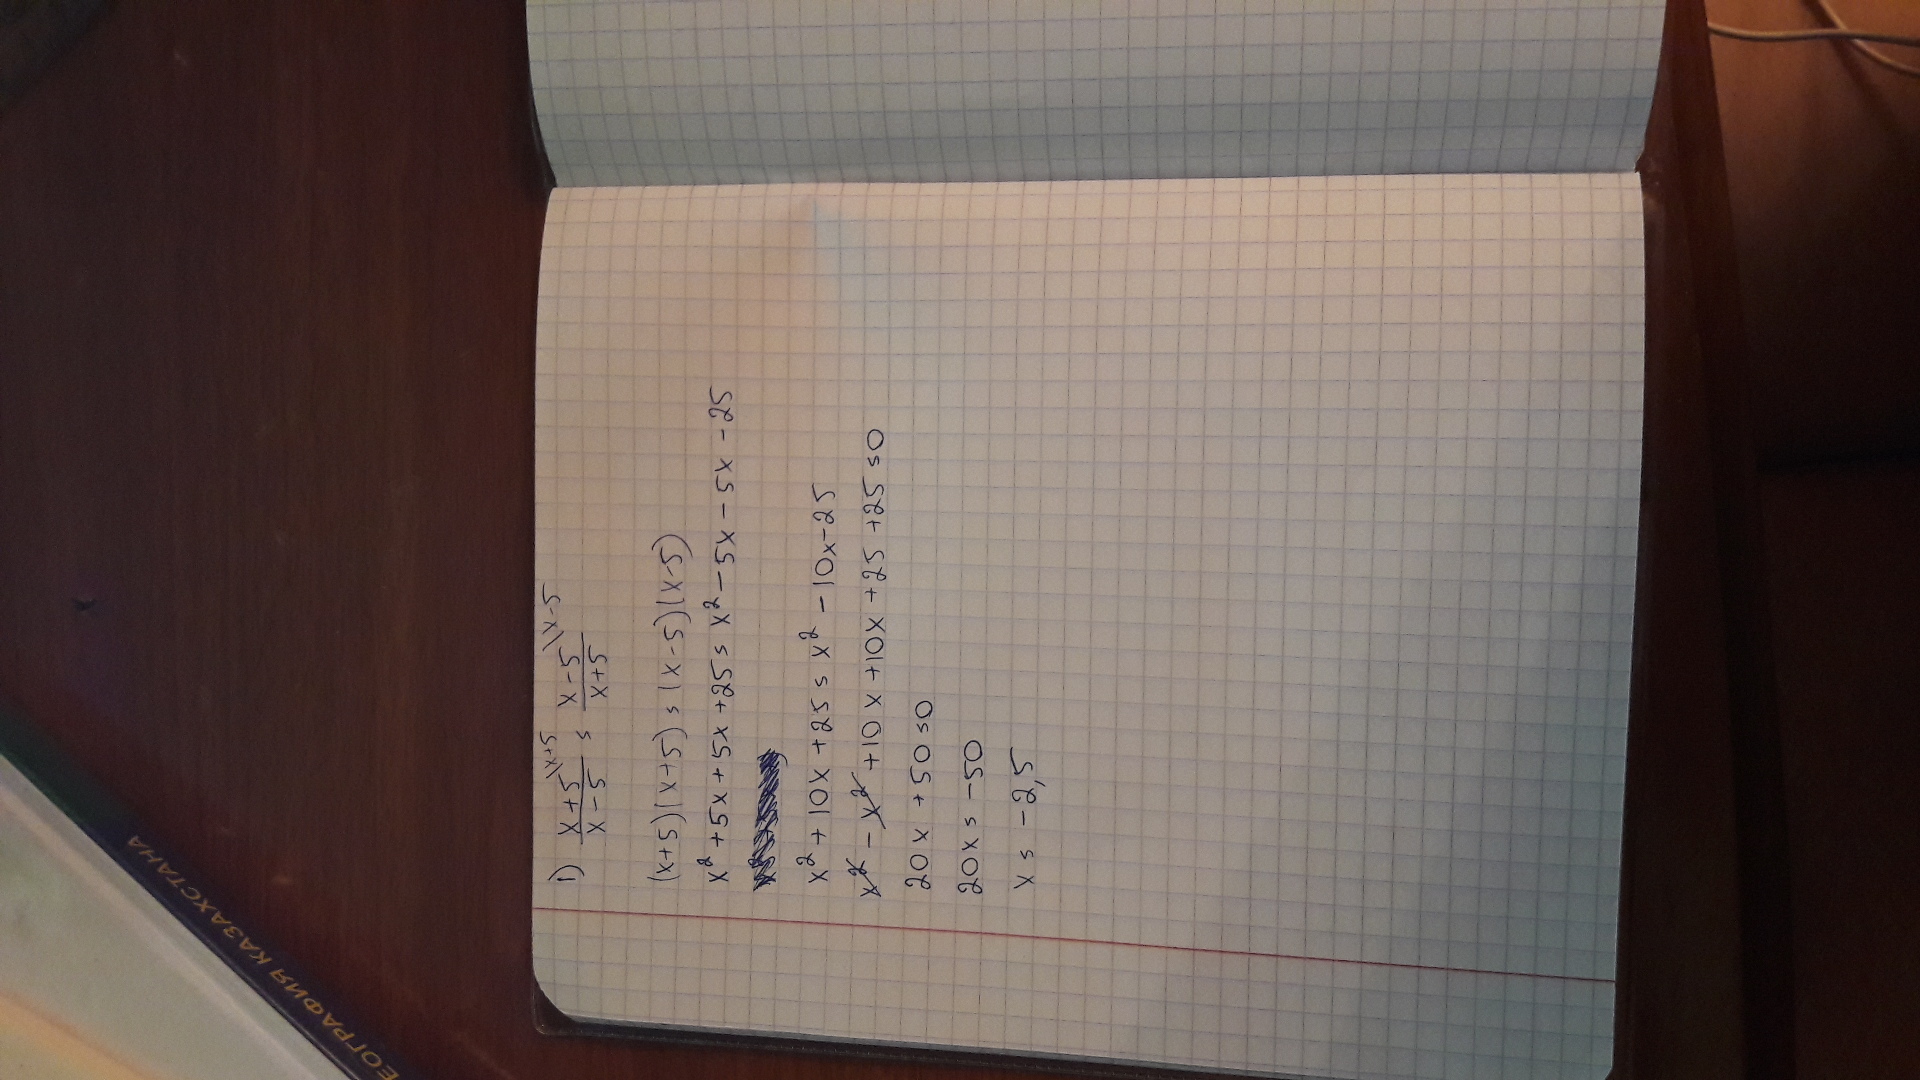 1) x+5 \x+5 / x-5 = x-5 \x-5 / x+5
(x+5)(x+5)=(x-5)(x-5)
x²+5x+5x+25=x²-5x-5x-25
x²+10x+25=x²-10x-25
x²-x²+10x+10x+25+25=0
20x+50=0
20x=-50
x=-2,5
ЕОГРАФИЯ КАЗАХСТАНА